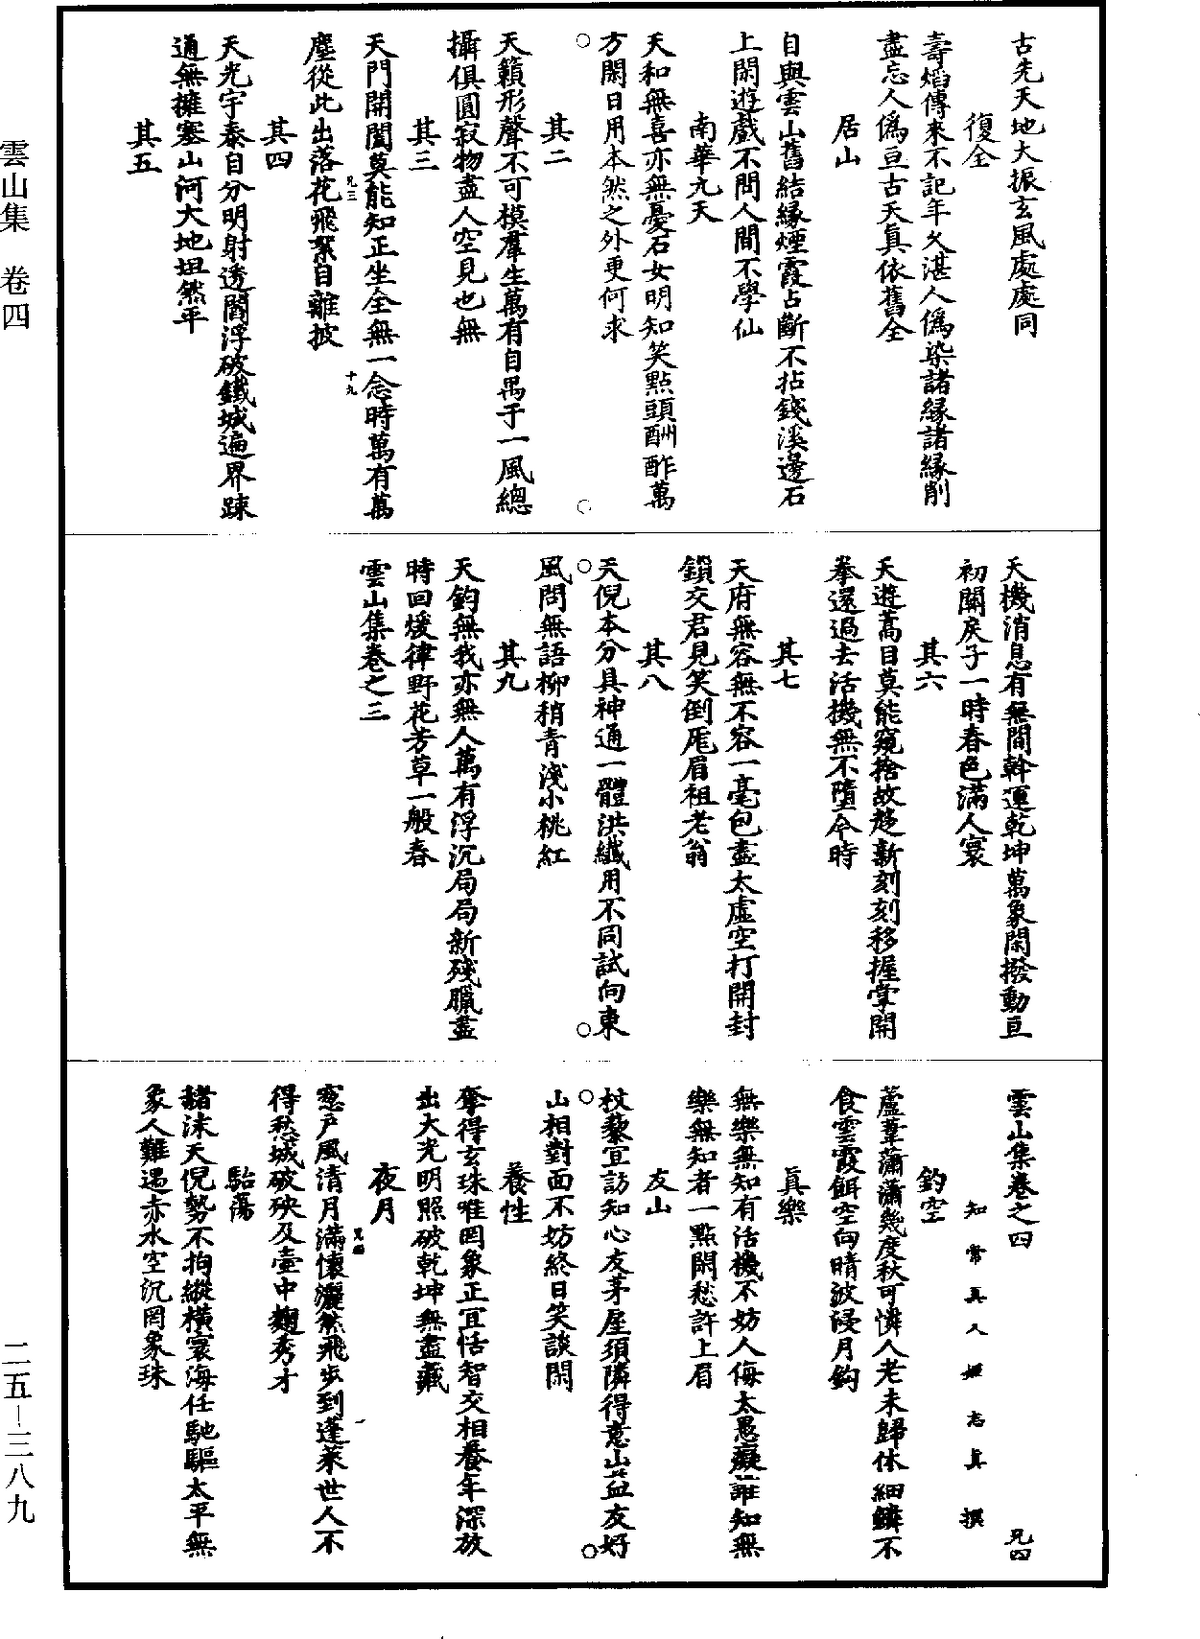 古先天地大振玄風處處同
復全
壽熖傳來不記年久湛人僞染諸緣諸緣削
盡忘人僞亘古天真依舊全
居山
自與雲山舊結緣煙霞占斷不拈錢溪邊石
上閑遊戲不問人間不學仙
南華九天
天和無喜亦無憂石女明知笑點頭酬酢萬
方閑日用本然之外更何求
其二
天籟形聲不可模羣生萬有自禺于一風總
攝俱圓寂物盡人空見也無
其三
天門開闔莫能知正坐全無一念時萬有萬
塵從此出落花飛絮自離披
兄三
十九
其四
天光宇泰自分明射透閻浮破鐵城遍界踈
通無擁塞山河大地坦然平
其五
天機消息有無間斡運乾坤萬象閑撥動亘
初關戾子一時春色滿人寰
其六
天遊蒿目莫能窺捨故趍新刻刻移握掌開
拳還過去活機無不墮今時
其七
天府無容無不容一毫包盡太虛空打開封
鎖交君見笑倒厖眉祖老翁
其八
天倪本分具神通一體洪纖用不同試向東
風問無語柳稍青淺小桃紅
其九
天鈞無我亦無人萬有浮沉局局新殘臘盡
時回煖律野花芳草一般春
雲山集卷之三
雲山集卷之四
兄四
知常真人姬志真撰
釣空
蘆葦蕭蕭幾度秋可憐人老未歸休細鱗不
食雲霞餌空向晴波浸月鈎
真樂
無樂無知有活機不妨人侮太愚癡誰知無
樂無知者一點閑愁許上眉
友山
杖藜宜訪知心友茅屋須隣得意山益友好
山相對面不妨終日笑談閑
養性
奪得玄珠唯罔象正宜恬智交相養年深放
出大光明照破乾坤無盡藏
夜月
窓戶風清月滿懷灑然飛步到蓬萊世人不
得愁城破殃及壺中麴秀才
兄四
一
駘蕩
赭沫天倪勢不拘縱橫寰海任馳驅太平無
象人難遇赤水空沉罔象珠
雲山集 卷四
二五—三八九